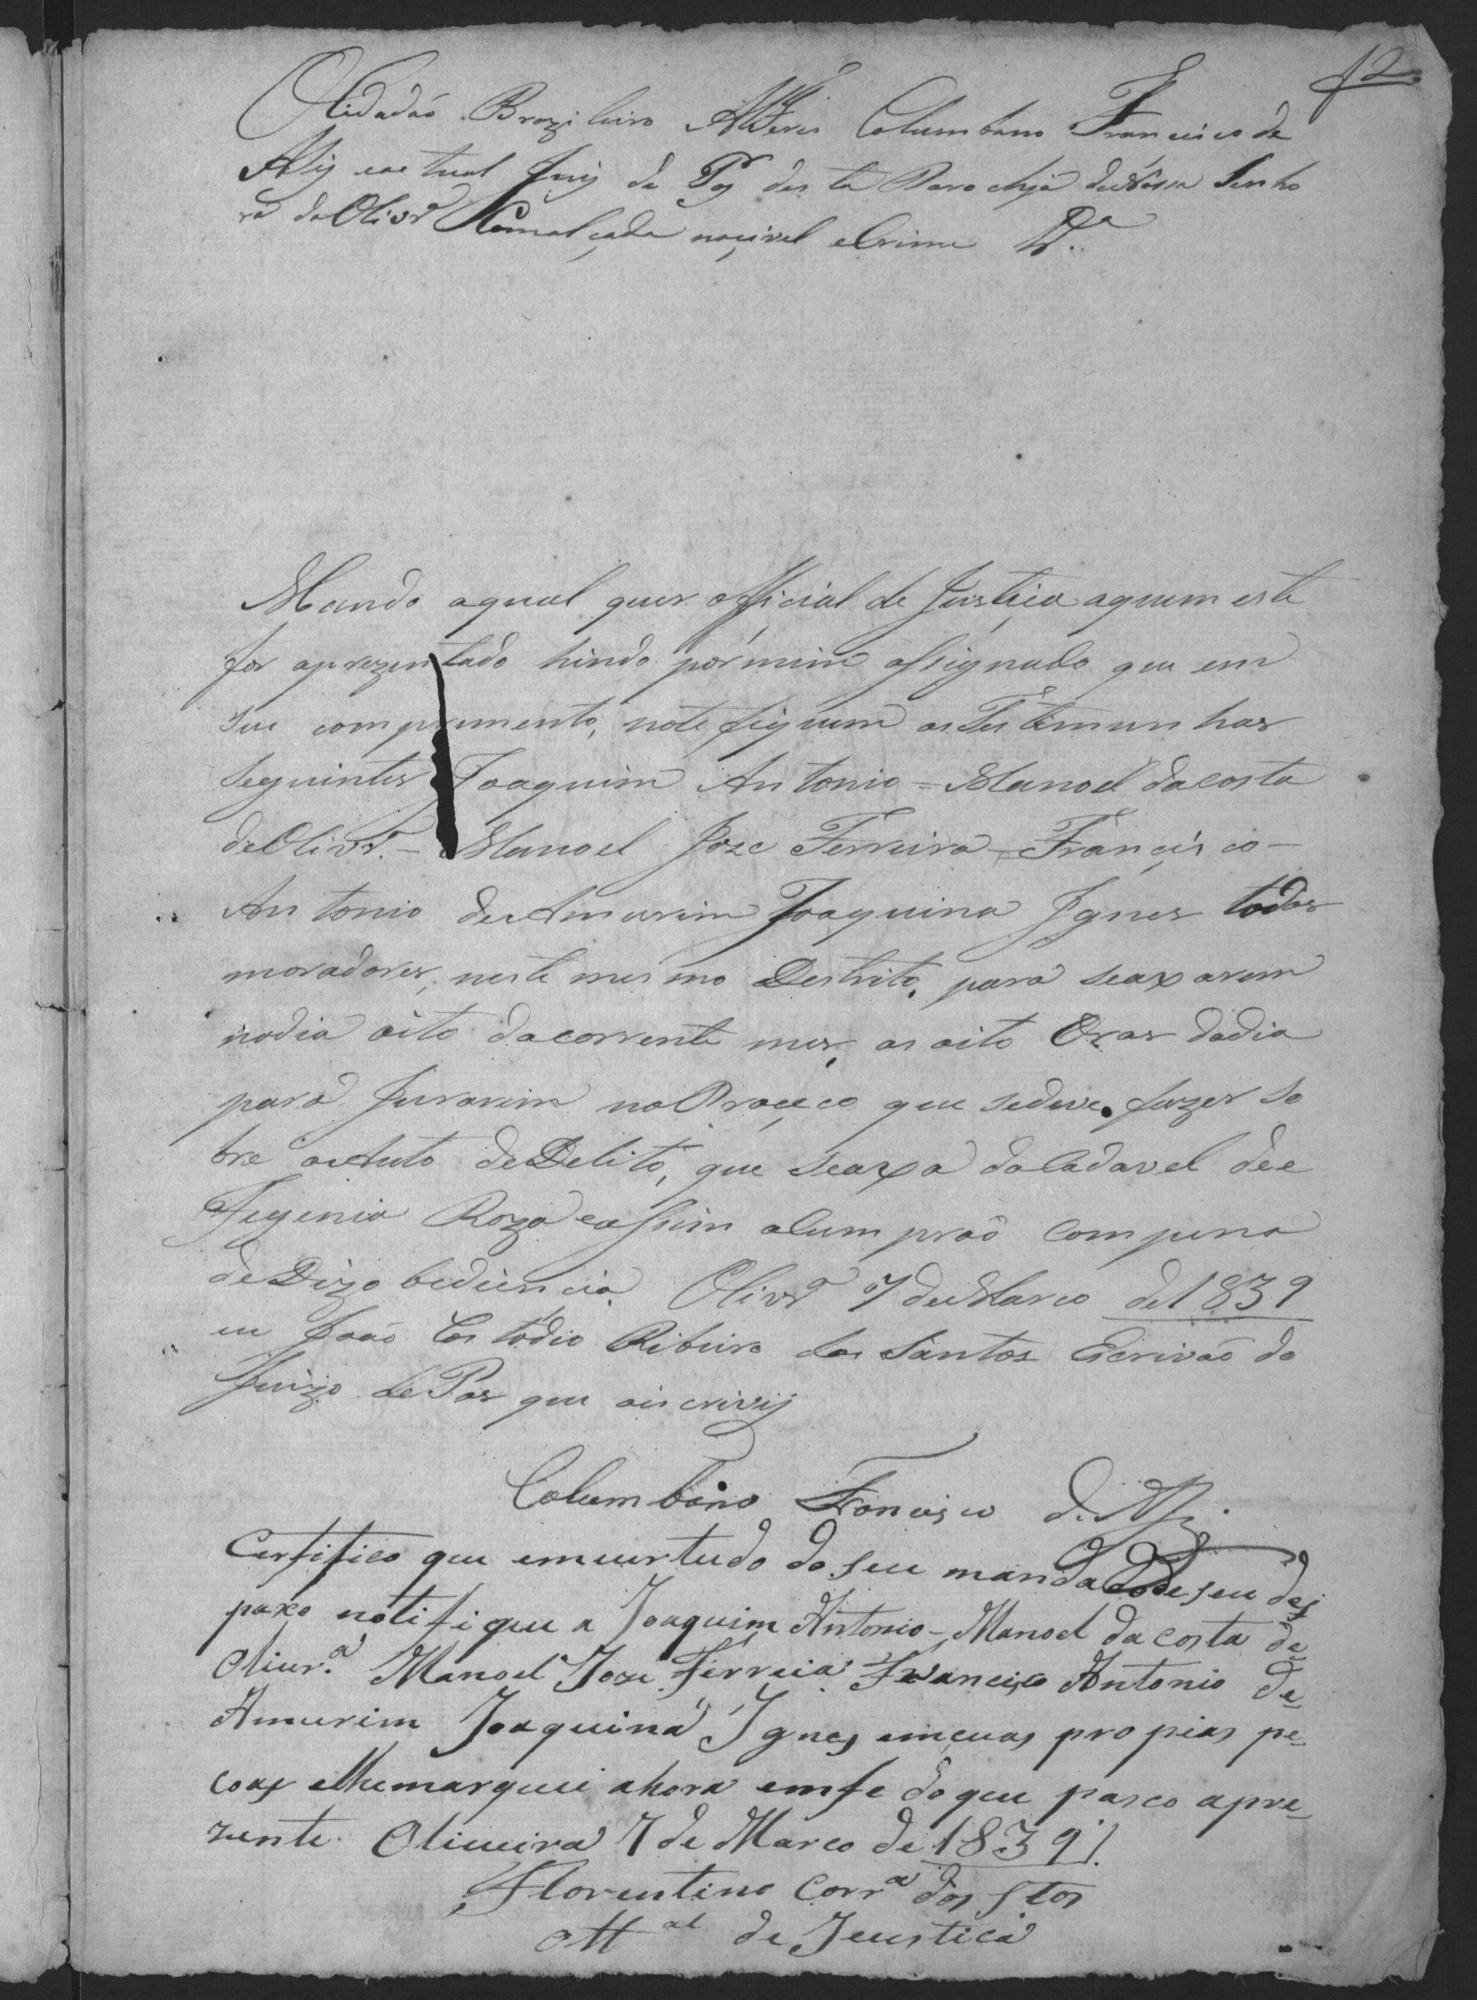 12
O Cidadaõ Brazileiro Alferes Columbano Francisco de
Alij eactual Juij de Paz desta Parochja deNossa Senho
ra deOlivrª Comalçada nocivel eCrime Vª
Mando aqual quer official de Justiça aquem este
for aprezentado hindo pormim assignado que em
seu comprimento, notefiquem as Testemunhas
Seguintes Joaquim Antonio = Manoel daCosta
deOlivrª - Manoel Joze Ferreira - Francisco -
Antonio deAmurim Joaquina Ignes todos
moradores, neste mesmo Destrito, para seaxarem
nodia oito docorrente mes, as oito Oras dodia
para Jurarem noProceço que sedeve fazer so
bre oAuto deDelito, que seaxa doCadavel dee
Fegenia Roza eassim alumpraõ Com pena
deDizobediencia Olivrª 7 deMarco de 1839
eu Joaõ Costodio Ribeiro dos Santos Escrivaõ do
Juizo de Pas que oescrivij
Columbano Francisco de
Certifico que emvertudo do seu mandado e seu des
paxo notifique a Joaquim Antonio - Manoel da Costa de
Oliur.ª Manoel Joze Ferreia Francisco Antonio de
Amurim Joaquina Ignes emcuas propias pe-
coas elhemarquei ahora emfe doque pasco apre-
zente Oliueira 7 de Marco de 1839
Florentino Corrª dos Stos
Offal de Jeustica